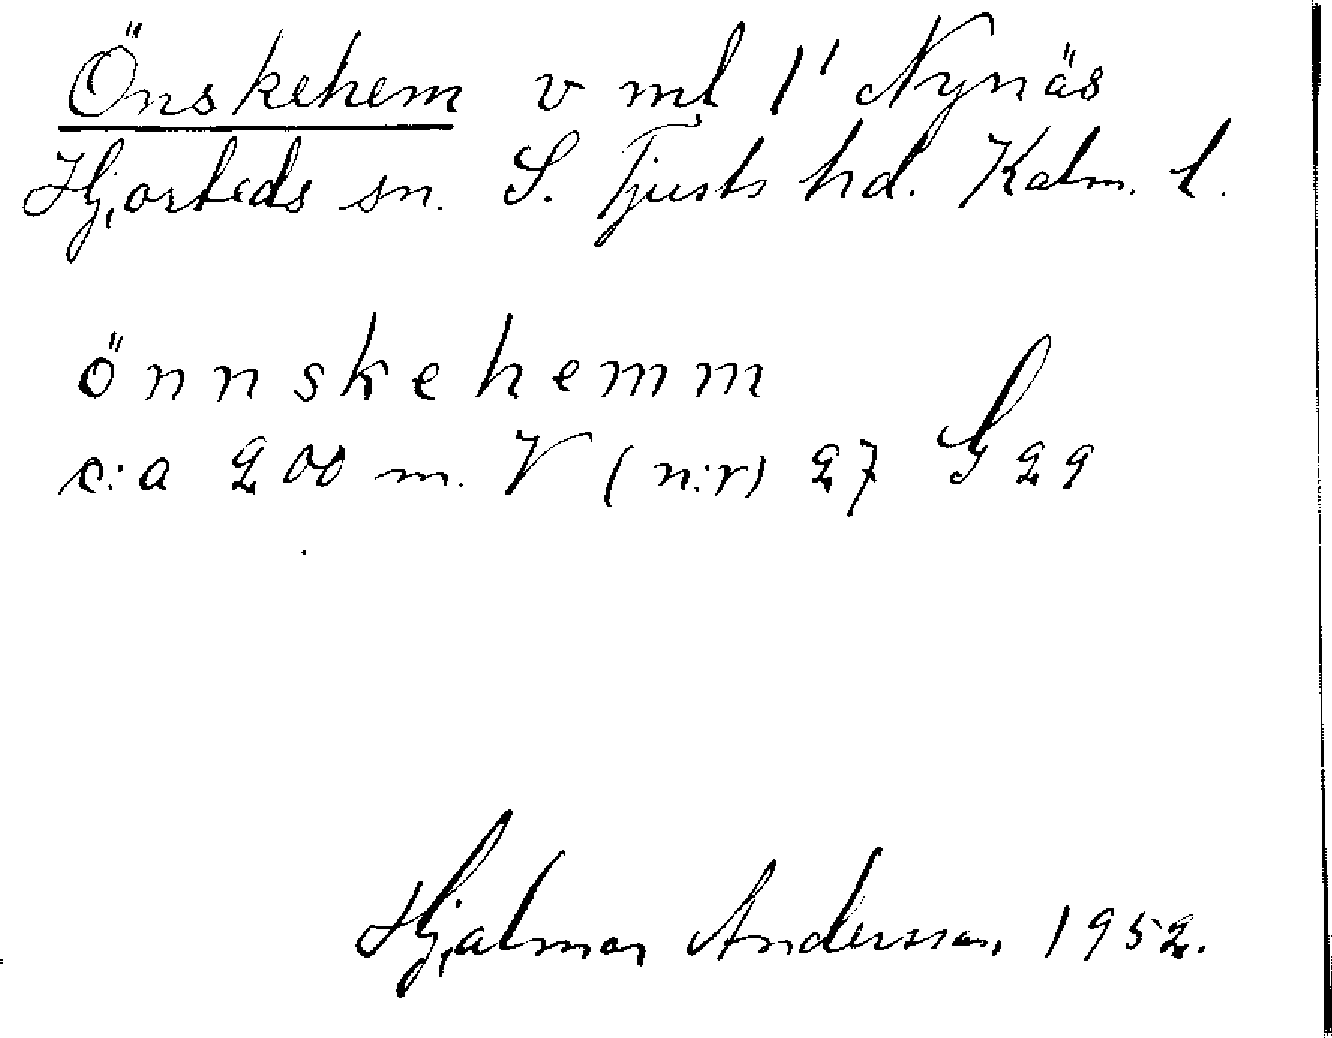 Önskehem v ml 1' Nynäs
Hjorteds sn. S. Tjusts hd. Kalm. l.
önnskehemm
c:a 200 m. V (n:r) 27 G 29
Hjalmar Andersson 1952.